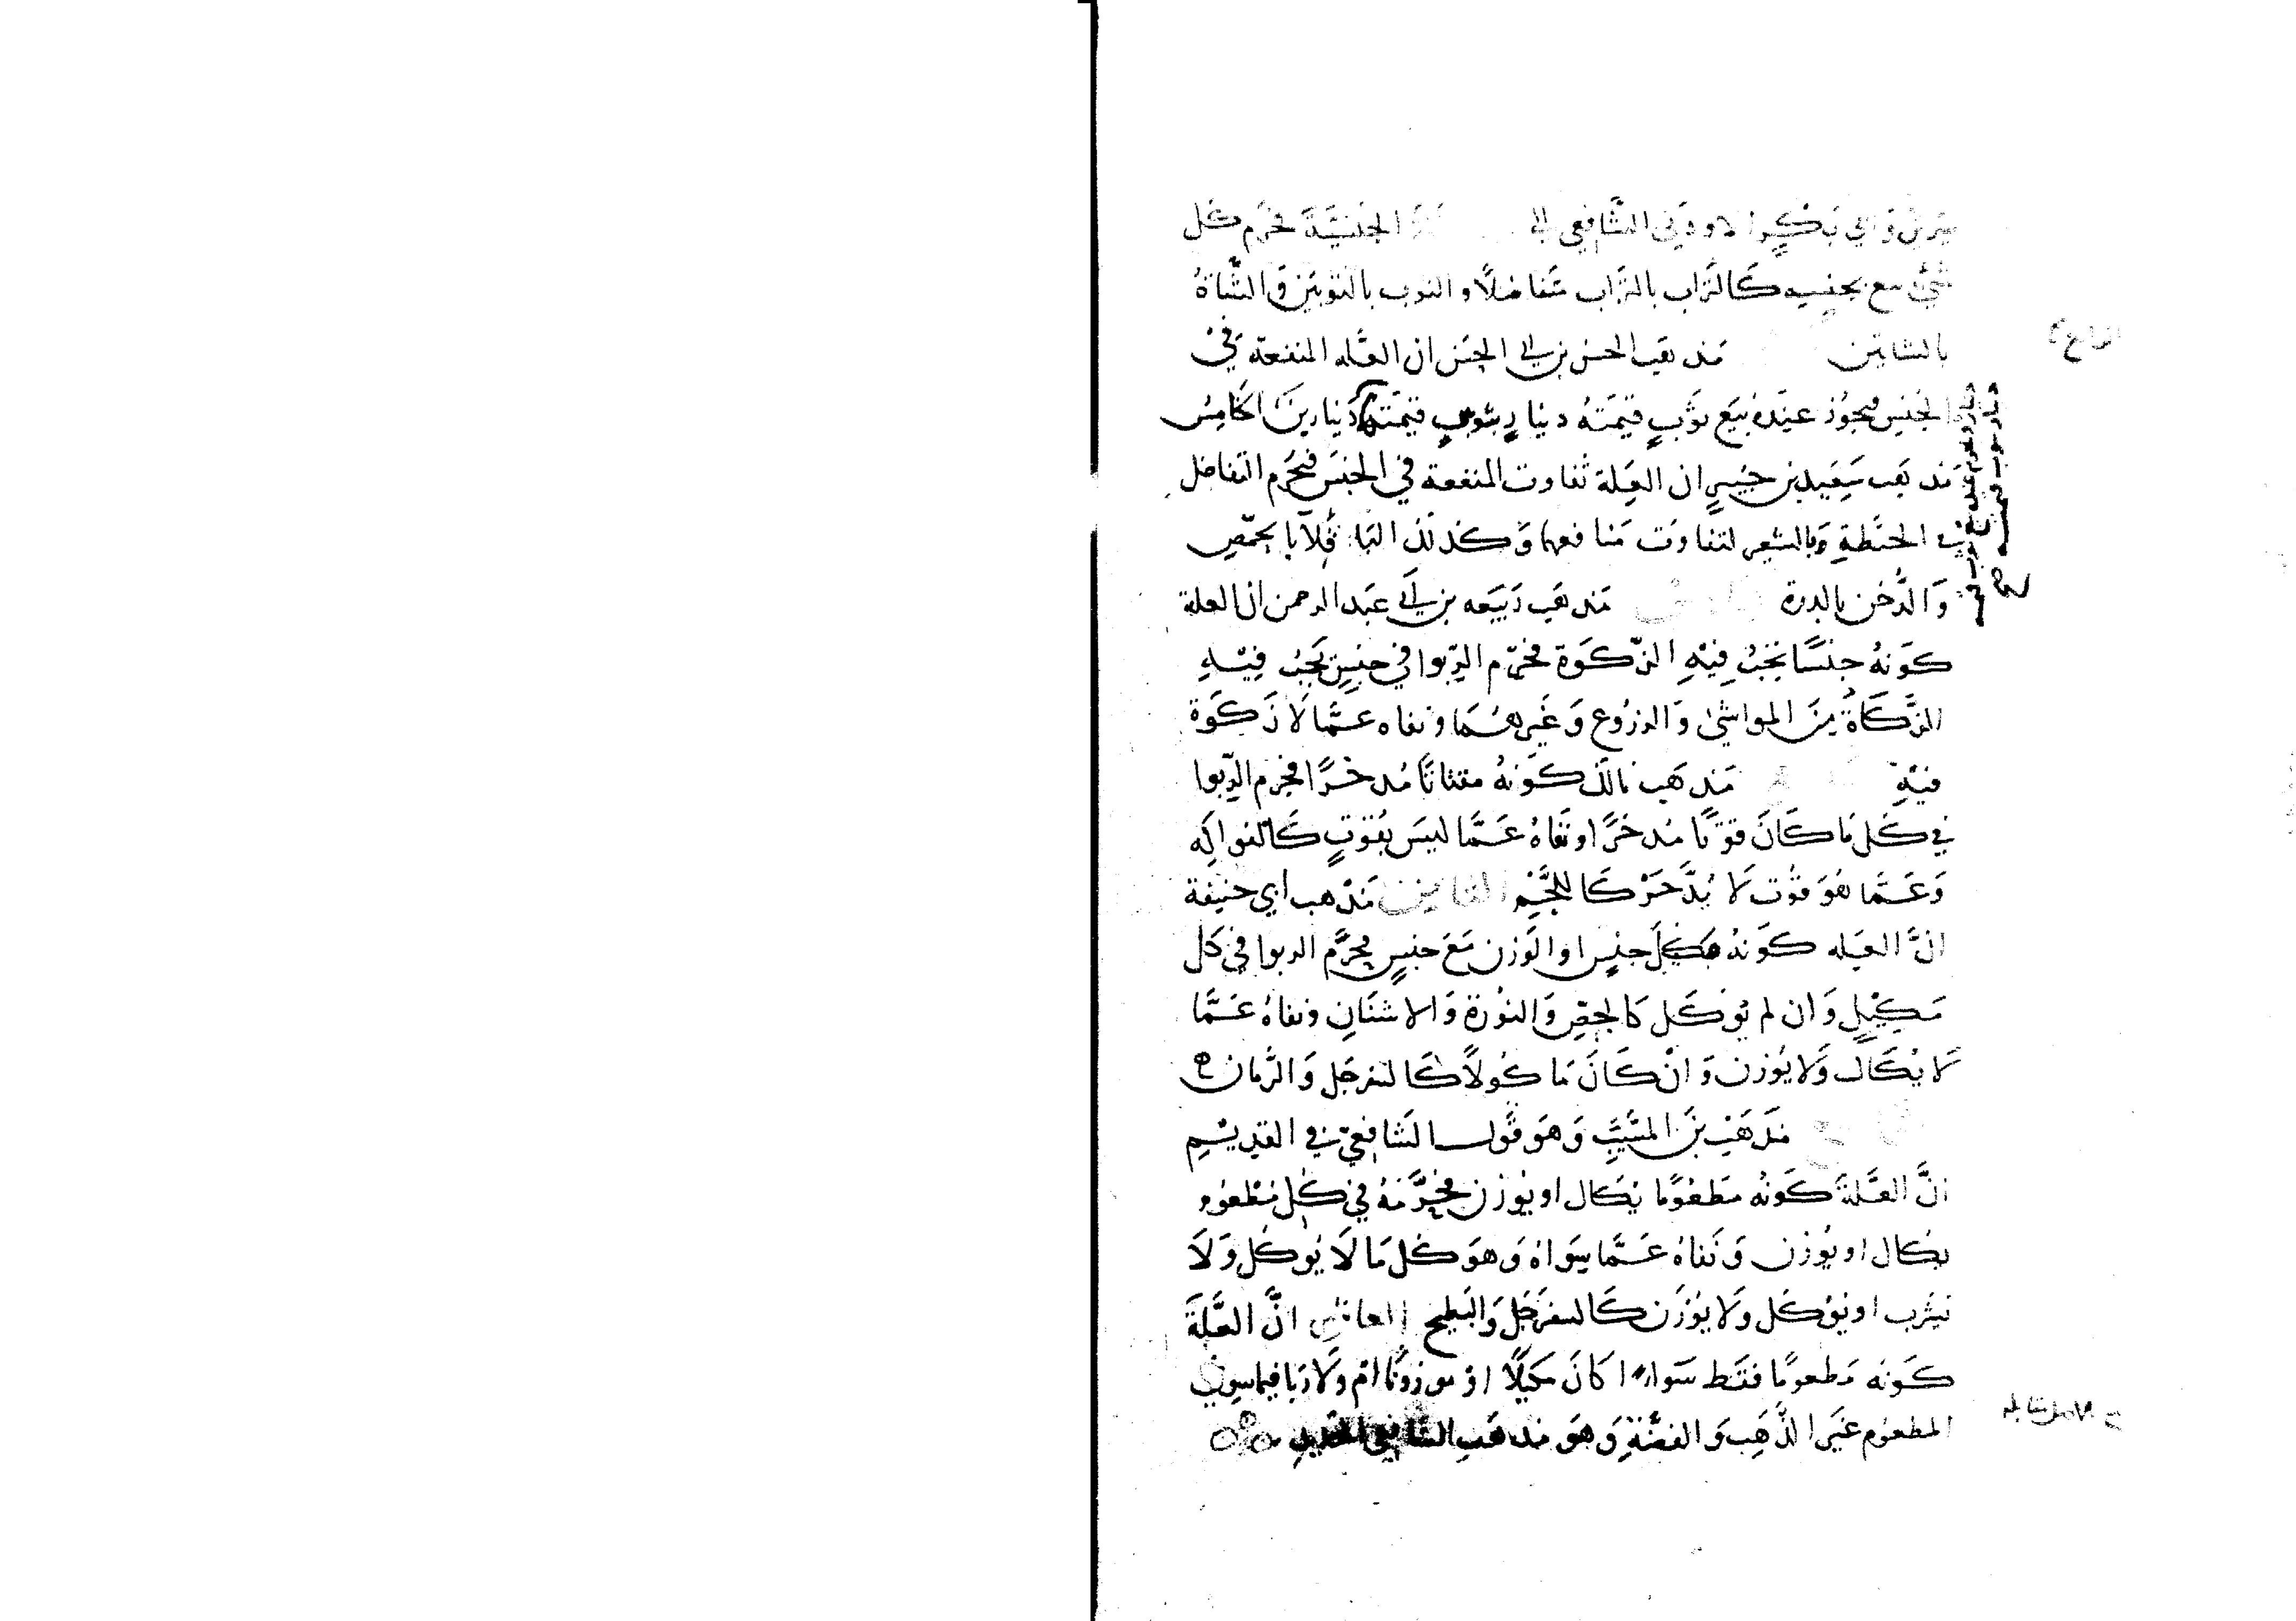 سيرين وابي بكر الاودني الشافعي الجنسية فحرم كل
شيء بيع بجنسه كالتراب بالتراب متفاضلا والثوب بالثوبين والشاة
بالشاتين مذهب الحسن بن ابي الحسن ان العلة المنفعة في
الجنس فيجوز عنده بيع ثوب قيمته دينار بثوب قيمته دينار
مذهب سعيد بن جبير ان العلة تفاوت المنفعة في الجنس فيحرم التفاضل
في الحنطة وبالشعير لتفاوت منافعها وكذلك الباقلا بالحمص
والدخن بالذرة مذهب ربيعه بن ابي عبد الرحمن ان العلة
كونه جنسا يجب فيه الزكوة فحرم الربوا في جنس يجب فيه
الزكاة من المواشي والزروع وغيرهما ونفاه عما لا زكوة
فيه مذهب مالك كونه مقتاتا مدخرا فحرم الربوا
في كل ما كان قوتا مدخرا ونفاه عما ليس بقوت كالفواكه
وعما هو قوت لا يدخر كاللحم الثامن مذهب ابي حنيفة
ان العله كونه مكيل جنس او الوزن مع جنس فحرم الربوا في كل
مكيل وان لم يوكل كالجص والنورة والاشنان ونفاه عما
لا يكال ولا يوزن وان كان ماكولا كالسفرجل والرمان
مذهب بن المسيب وهو قول الشافعي في القديم
ان العلة كونه مطعوما يكال او يوزن فحرمه في كل مطعوم
يكال او يوزن ونفاه عما سواه وهو كل ما لا يوكل ولا
يشرب او يوكل ولا يوزن كالسفرجل والبطيح العاشر ان العلة
كونه مطعوما فقط سواء كان مكيلا او موزونا ام لا ولا ربا فيما سوى
المطعوم غير الذهب والفضة وهو مذهب الشافعي الجديد